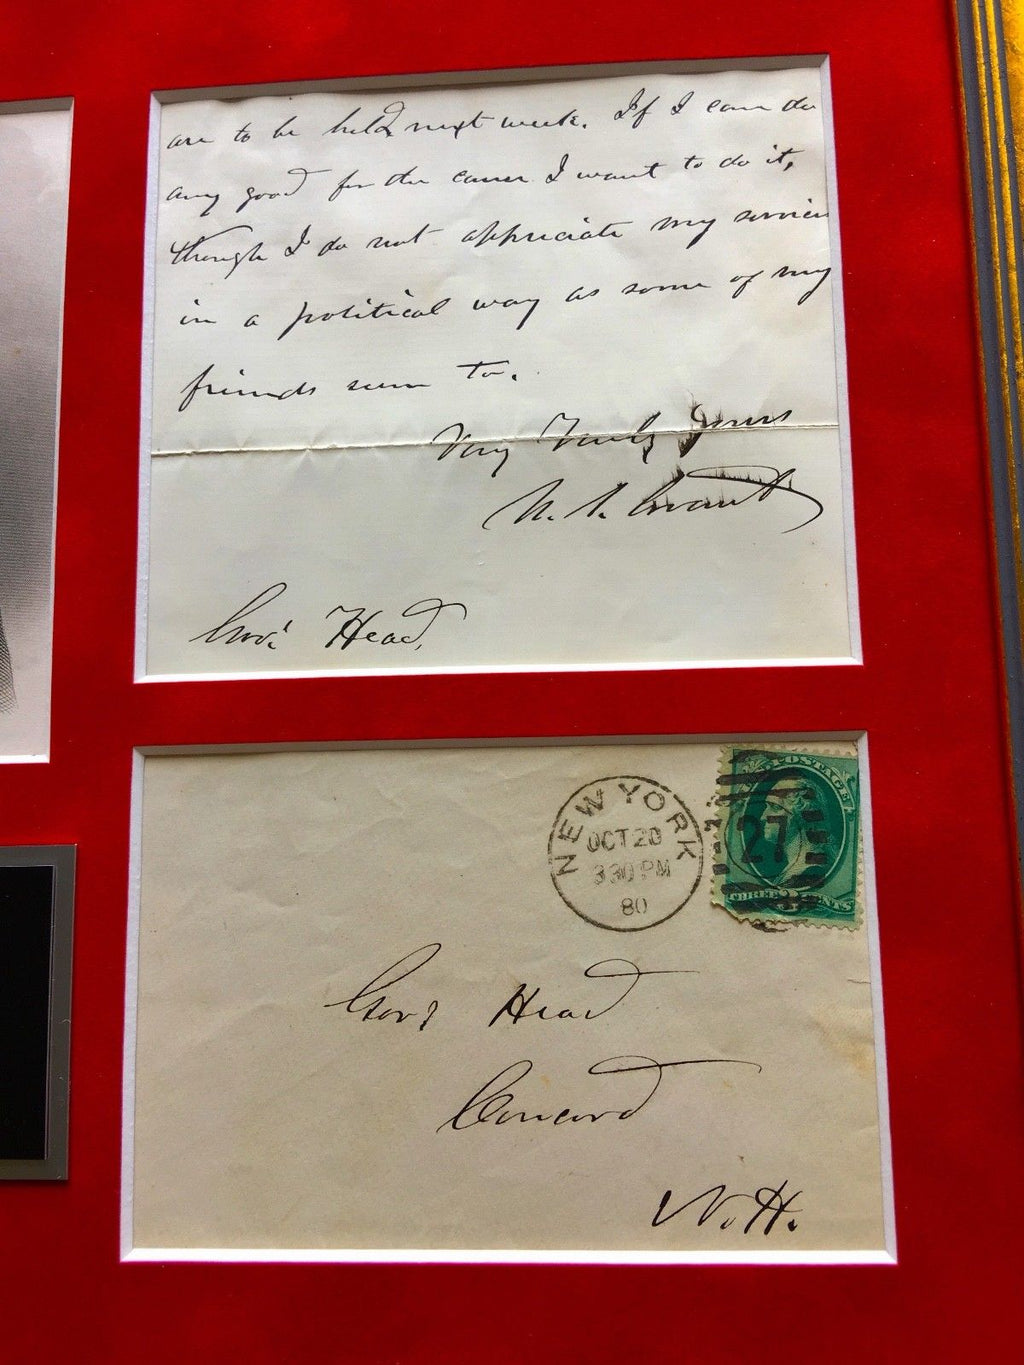 are to be held next week. If I can do
any good for the cause I want to do it,
though I do not appreciate my services
in a political way as some of my
friends seem to.
Very Truly Yours
U. S. Grant
Gov. Head,
NEW YORK
OCT 20
330 PM
80
POSTAGE
27
THREE CENTS
Gov. Head
Concord
N. H.